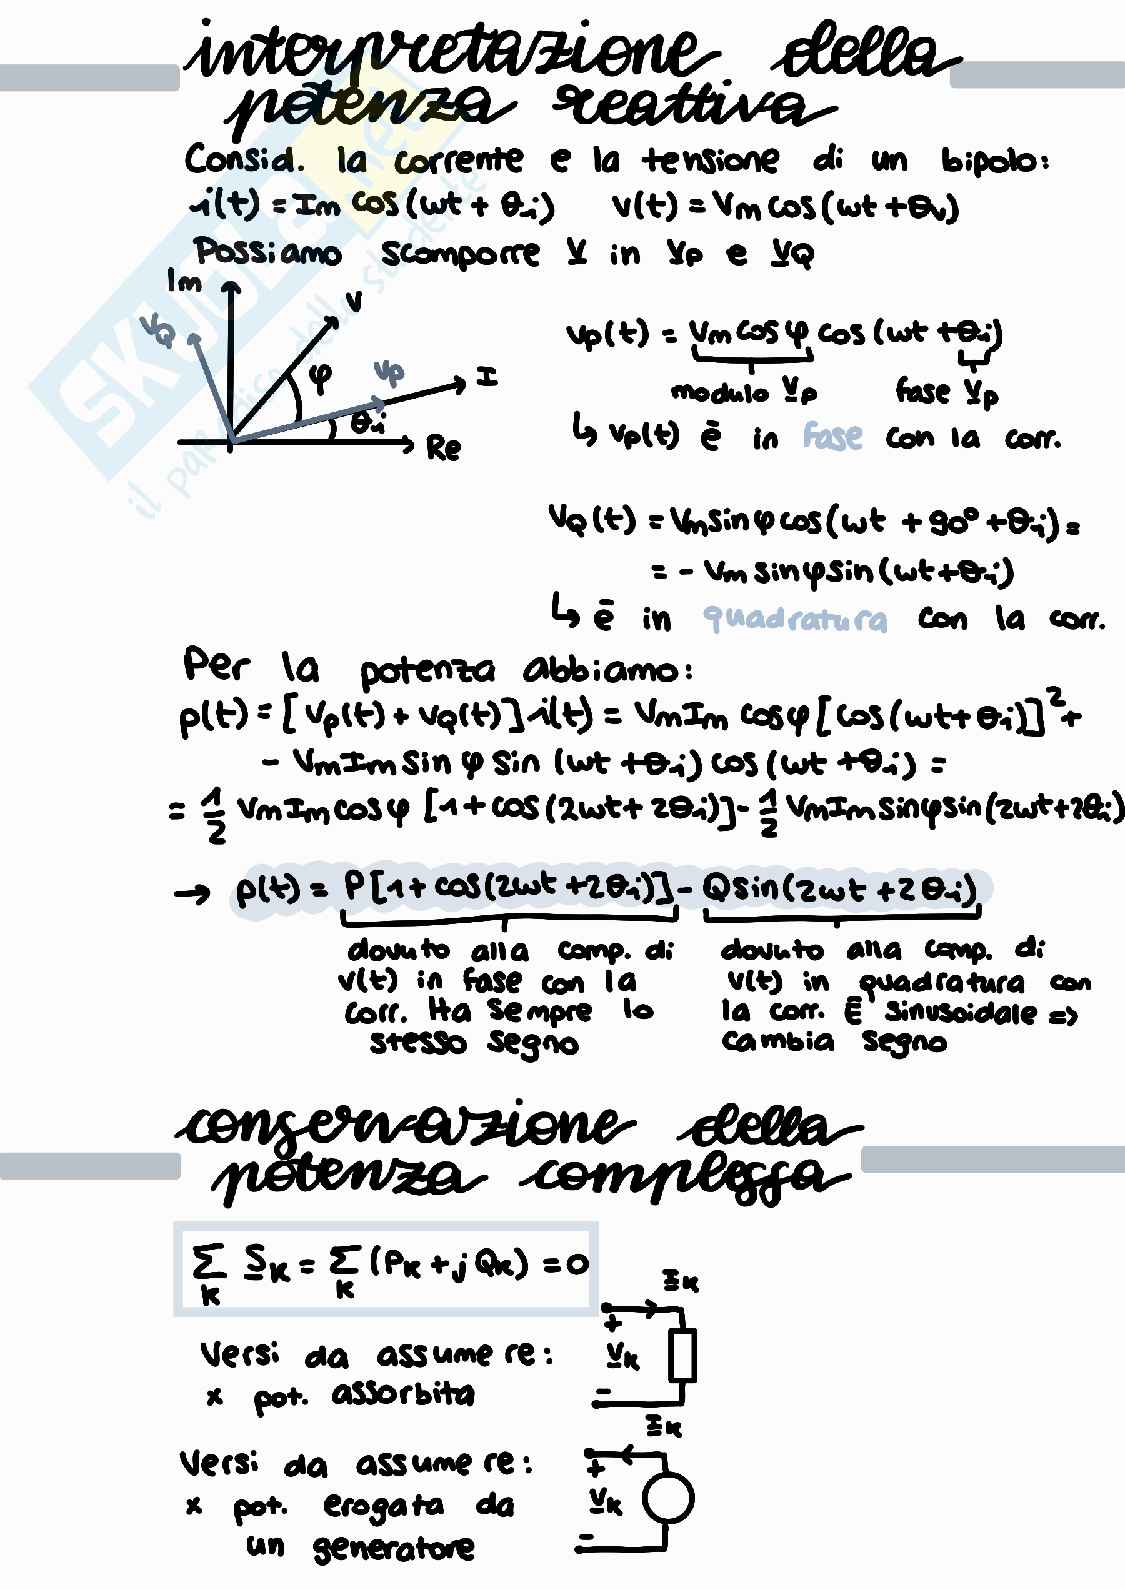 interpretazione della
potenza reattiva
Consid. la corrente e la tensione di un bipolo:
i(t) = Im cos(ωt + θi)   v(t) = Vm cos(ωt + θv)
Possiamo scomporre V in Vp e VQ
Im
V
VQ
φ
Vp
I
θi
Re
vp(t) = Vm cos φ cos (ωt + θi)
modulo Vp   fase Vp
↳ vp(t) è in fase con la corr.
vQ(t) = Vm sin φ cos(ωt + 90° + θi) =
= - Vm sin φ sin (ωt + θi)
↳ è in quadratura con la corr.
Per la potenza abbiamo:
p(t) = [vp(t) + vQ(t)] i(t) = VmIm cosφ [cos(ωt + θi)]² +
- VmIm sin φ sin (ωt + θi) cos (ωt + θi) =
= 1/2 VmIm cosφ [1 + cos(2ωt + 2θi)] - 1/2 VmIm sinφ sin(2ωt + 2θi)
→ p(t) = P[1 + cos(2ωt + 2θi)] - Q sin(2ωt + 2θi)
dovuto alla comp. di
v(t) in fase con la
corr. Ha sempre lo
stesso segno
dovuto alla comp. di
v(t) in quadratura con
la corr. E' sinusoidale =>
cambia segno
conservazione della
potenza complessa
Σk Sk = Σk (Pk + j Qk) = 0
Ik
+
Vk
-
Versi da assumere:
x pot. assorbita
Ik
+
Vk
-
Versi da assumere:
x pot. erogata da
un generatore
SKUOLA.net